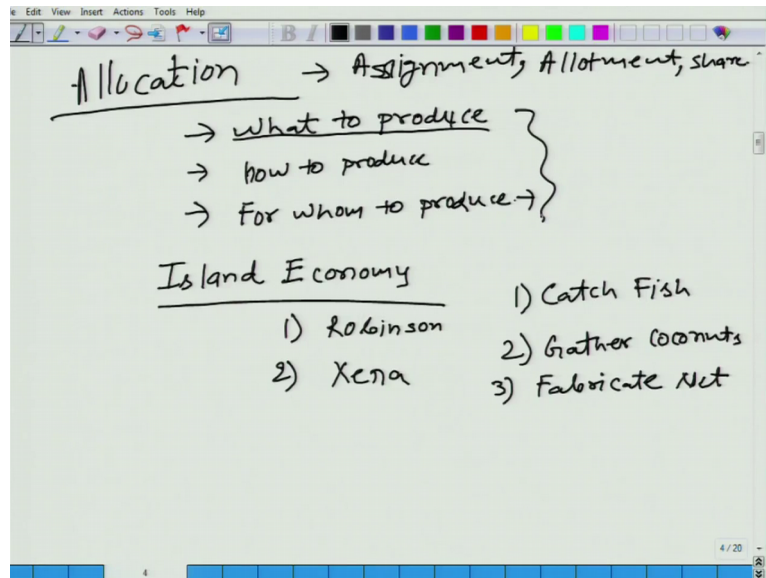 Edit View Insert Actions Tools Help
B I
Allocation → Assignment, Allotment, share
→ What to produce
→ how to produce
→ For whom to produce →
Island Economy
1) Robinson
2) Xena
1) Catch Fish
2) Gather Coconuts
3) Fabricate Net
4 / 20
4